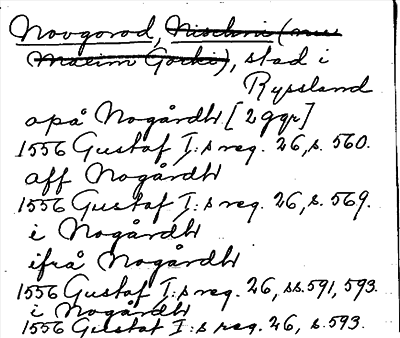 Novgorod, Nischni (nu
Maxim Gorki), stad i
Ryssland
apå Nogårdh [2 ggr]
1556 Gustaf I:s reg. 26, s. 560.
aff Nogårdh
1556 Gustaf I:s reg. 26, s. 569.
i Nogårdh
ifrå Nogårdh
1556 Gustaf I:s reg. 26, ss. 591, 593.
i Nogårdh
1556 Gustaf I:s reg. 26, s. 593.